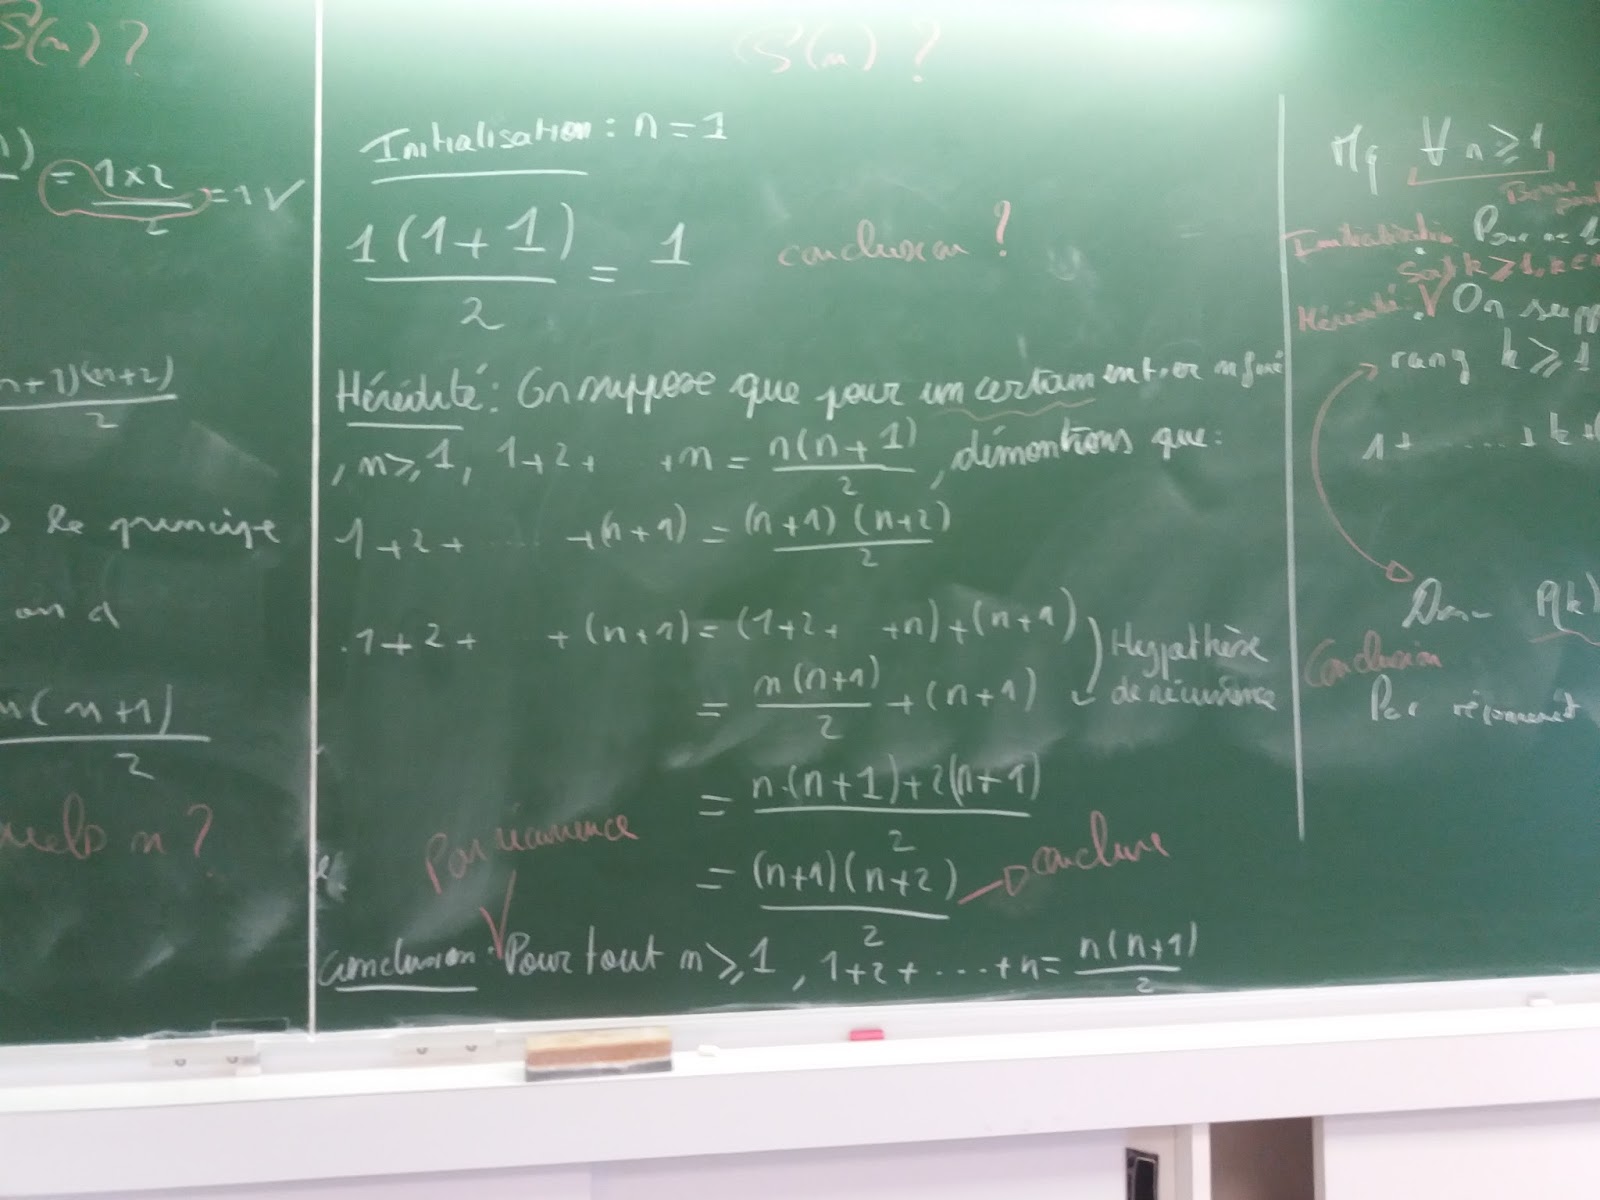 S(n) ?
= 1x2/2 = 1 ✓
n+1)(n+2)/2
le principe
on a
n(n+1)/2
n ?
S(n) ?
Initialisation : n = 1
1(1+1)/2 = 1
conclusion ?
Hérédité : On suppose que pour un certain entier n fixé
, n⩾1, 1+2+ +n = n(n+1)/2, démontrons que :
1+2+ ... +(n+1) = (n+1)(n+2)/2
.1+2+ +(n+1) = (1+2+ +n)+(n+1)
Hypothèse
= n(n+1)/2 + (n+1)
de récurrence
= n.(n+1)+2(n+1)/2
Par récurrence
= (n+1)(n+2)/2
conclure
conclusion : Pour tout n⩾1, 1+2+...+n = n(n+1)/2
Mq ∀ n⩾1
Initialisation
Soit k⩾1, k∈
Hérédité : On supp
rang k⩾1
1+ ...... + k+
Donc P(k)
Conclusion
Par